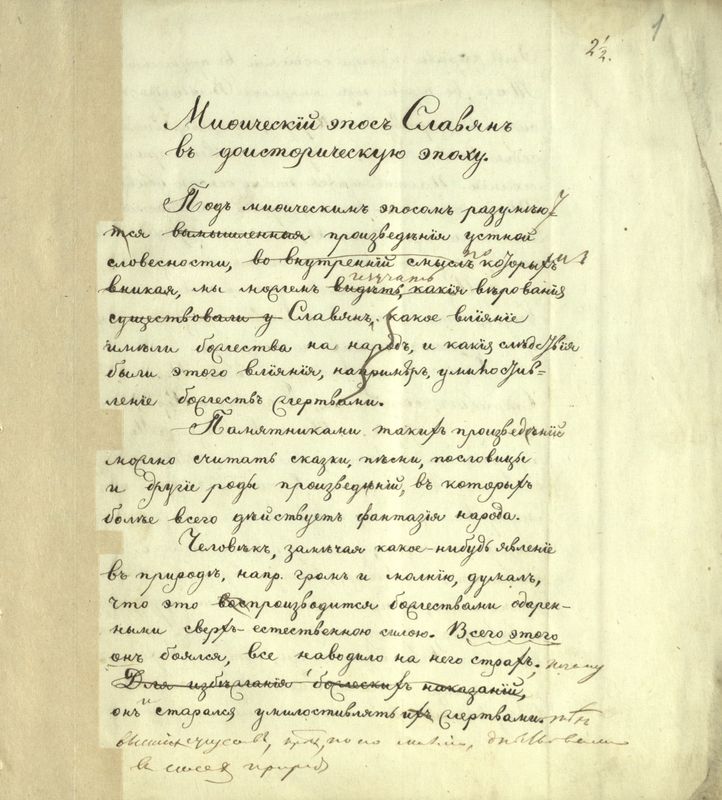 1
2½.
Миѳическій эпосъ Славянъ
въ доисторическую эпоху.
Подъ миѳическимъ эпосомъ разумѣю-
тся вымышленныя произведѣнія устной
словесности, во внутренній смыслъ которыхъ
изучать
вникая, мы можемъ видѣть, какія вѣрованія
существовали у Славянъ, какое вліяніе
имѣли божества на народъ, и какія слѣдствія
были этого вліянія, напримѣръ, умилостив-
леніе божествъ жертвами.
Памятниками такихъ произведѣній
можно считать сказки, пѣсни, пословицы
и другіе роды произведѣній, въ которыхъ
болѣе всего дѣйствуетъ фантазія народа.
Человѣкъ, замѣчая какое-нибудь явленіе
въ природѣ, напр. громъ и молнію, думалъ,
что это воспроизводится божествами одарен-
ными сверхъ-естественною силою. Всего этого
онъ боялся, все наводило на него страхъ, почему
Для избѣжанія божескихъ наказаній,
онъ и старался умилостивлять ихъ жертвами.
природѣ